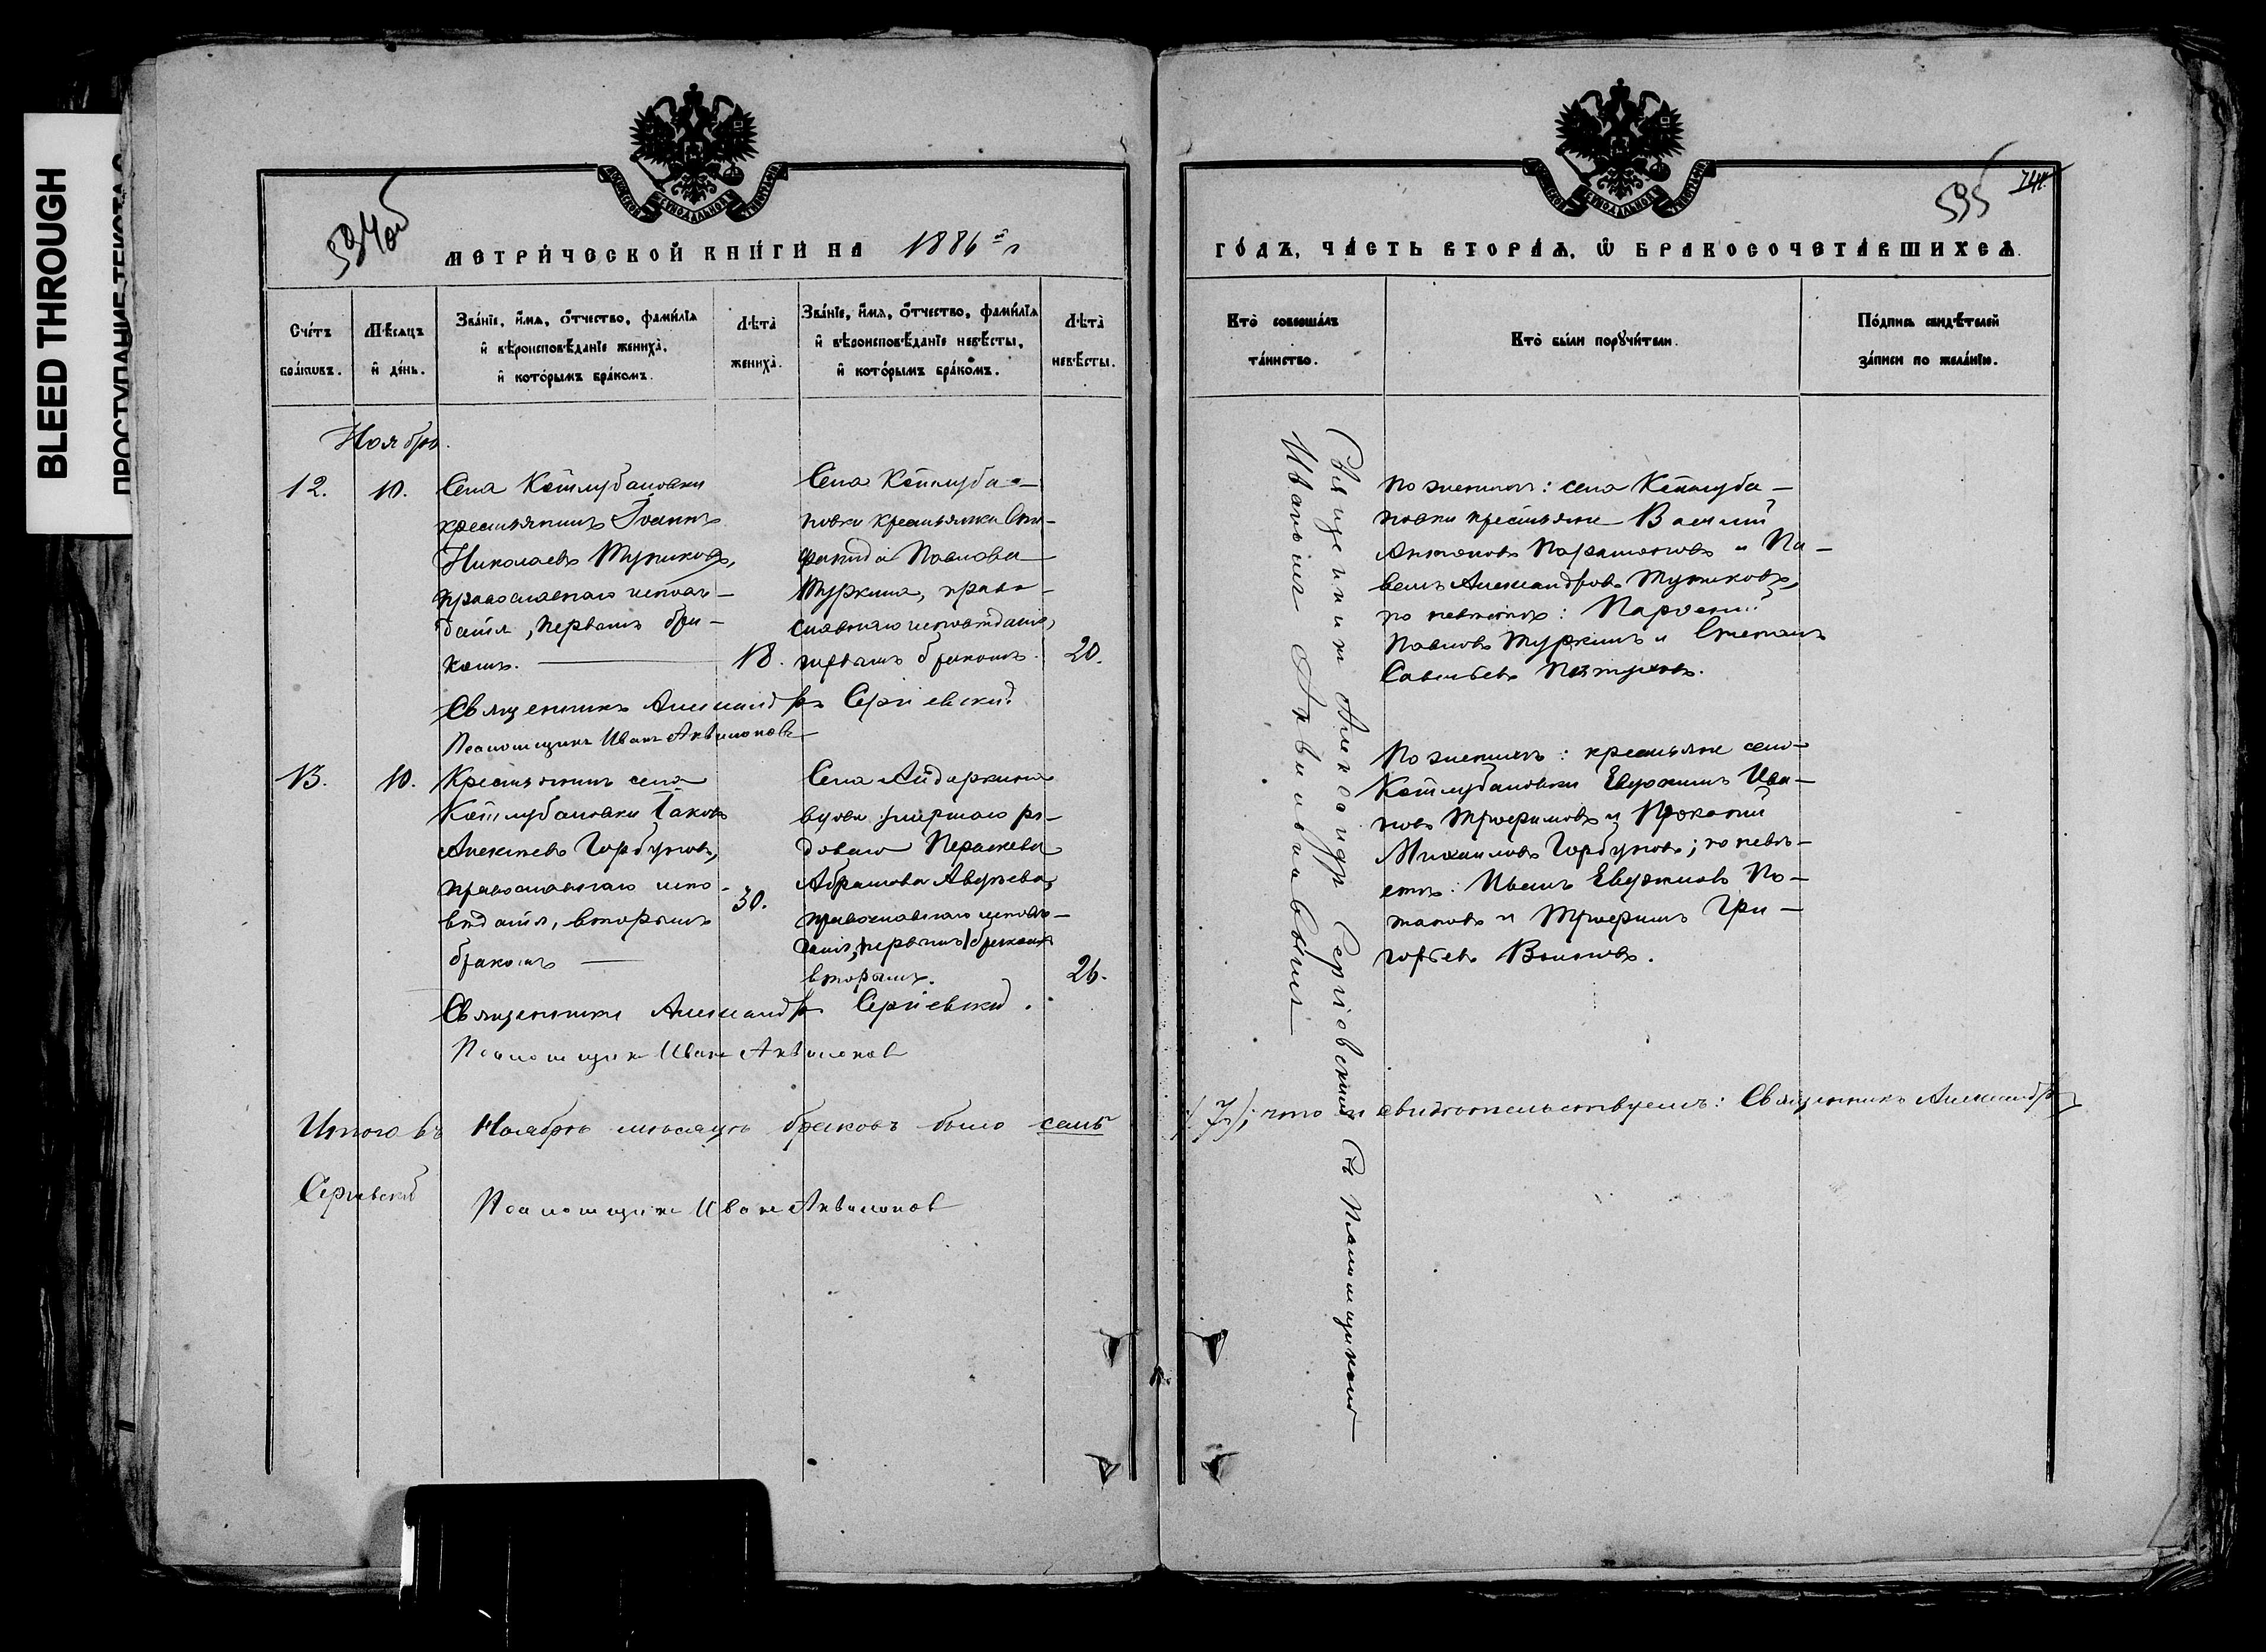 BLEED THROUGH
ПРОСТУПАНИЕ ТЕКСТА С
594об
МЕТРИ́ЧЕСКОЙ КНИ́ГИ НА 1886й г
Сче́тъ бра́ковъ.
Мѣ́сяцъ и҆ де́нь.
Зва́нїе, и҆́мѧ, ѻ҆́тчество, фами́лїѧ и҆ вѣроисповѣ́данїе жениха̀, и҆ кото́рымъ бра́комъ.
Лѣта̀ жениха̀.
Зва́нїе, и҆́мѧ, ѻ҆́тчество, фами́лїѧ и҆ вѣроисповѣ́данїе невѣ́сты, и҆ кото́рымъ бра́комъ.
Лѣта̀ невѣ́сты.
Ноябрь.
12.
10.
Села Котлубановки
крестьянинъ Іоаннъ
Николаевъ Тупиковъ,
православнаго исповѣ-
данія, первымъ бра-
комъ.
18.
Села Котлуба-
новки крестьянка Сте-
фанида Павлова
Туркина, право-
славнаго исповѣданія,
первымъ бракомъ.
20.
Священникъ Александръ Сергіевскій
Псаломщикъ Иванъ Аквилоновъ
13.
10.
Крестьянинъ села
Котлубановки Іаковъ
Алексѣевъ Горбуновъ,
православнаго испо-
вѣданія, вторымъ
бракомъ
30.
Села Айдаркина
вдова умершаго ря-
доваго Параскева
Абрамова Авдѣева,
православнаго исповѣ-
данія, первымъ бракомъ
вторымъ.
26.
Священникъ Александръ Сергіевскій.
Псаломщикъ Иванъ Аквилоновъ
Итого въ Ноябрѣ мѣсяцѣ браковъ было семь
Сергіевскій
Псаломщикъ Иванъ Аквилоновъ
595
ГО́ДЪ, ЧА́СТЬ ВТОРА́Ѧ, Ѽ БРАКОСОЧЕТА́ВШИХСѦ.
Кто̀ соверша́лъ та́инство.
Кто̀ бы́ли порꙋчи́тели.
По́дпись свидѣ́телей за́писи по жела́нїю.
Священникъ Александръ Сергіевскій съ Псаломщикомъ
Иваномъ Аквилоновымъ
По женихѣ: села Котлуба-
новки крестьяне Василій
Антоновъ Парамоновъ и Па-
велъ Александровъ Тупиковъ,
по невѣстѣ:
Павловъ Туркинъ и Степанъ
Савельевъ Пѣтуховъ.
По женихѣ: крестьяне села
Котлубановки Евдокимъ Ива-
новъ Трофимовъ и Прокопій
Михайловъ Горбуновъ; по невѣ-
стѣ: Евдокимовъ По-
таповъ и Трофимъ Гри-
горьевъ
(7); что и свидѣтельствуемъ: Священникъ Александръ